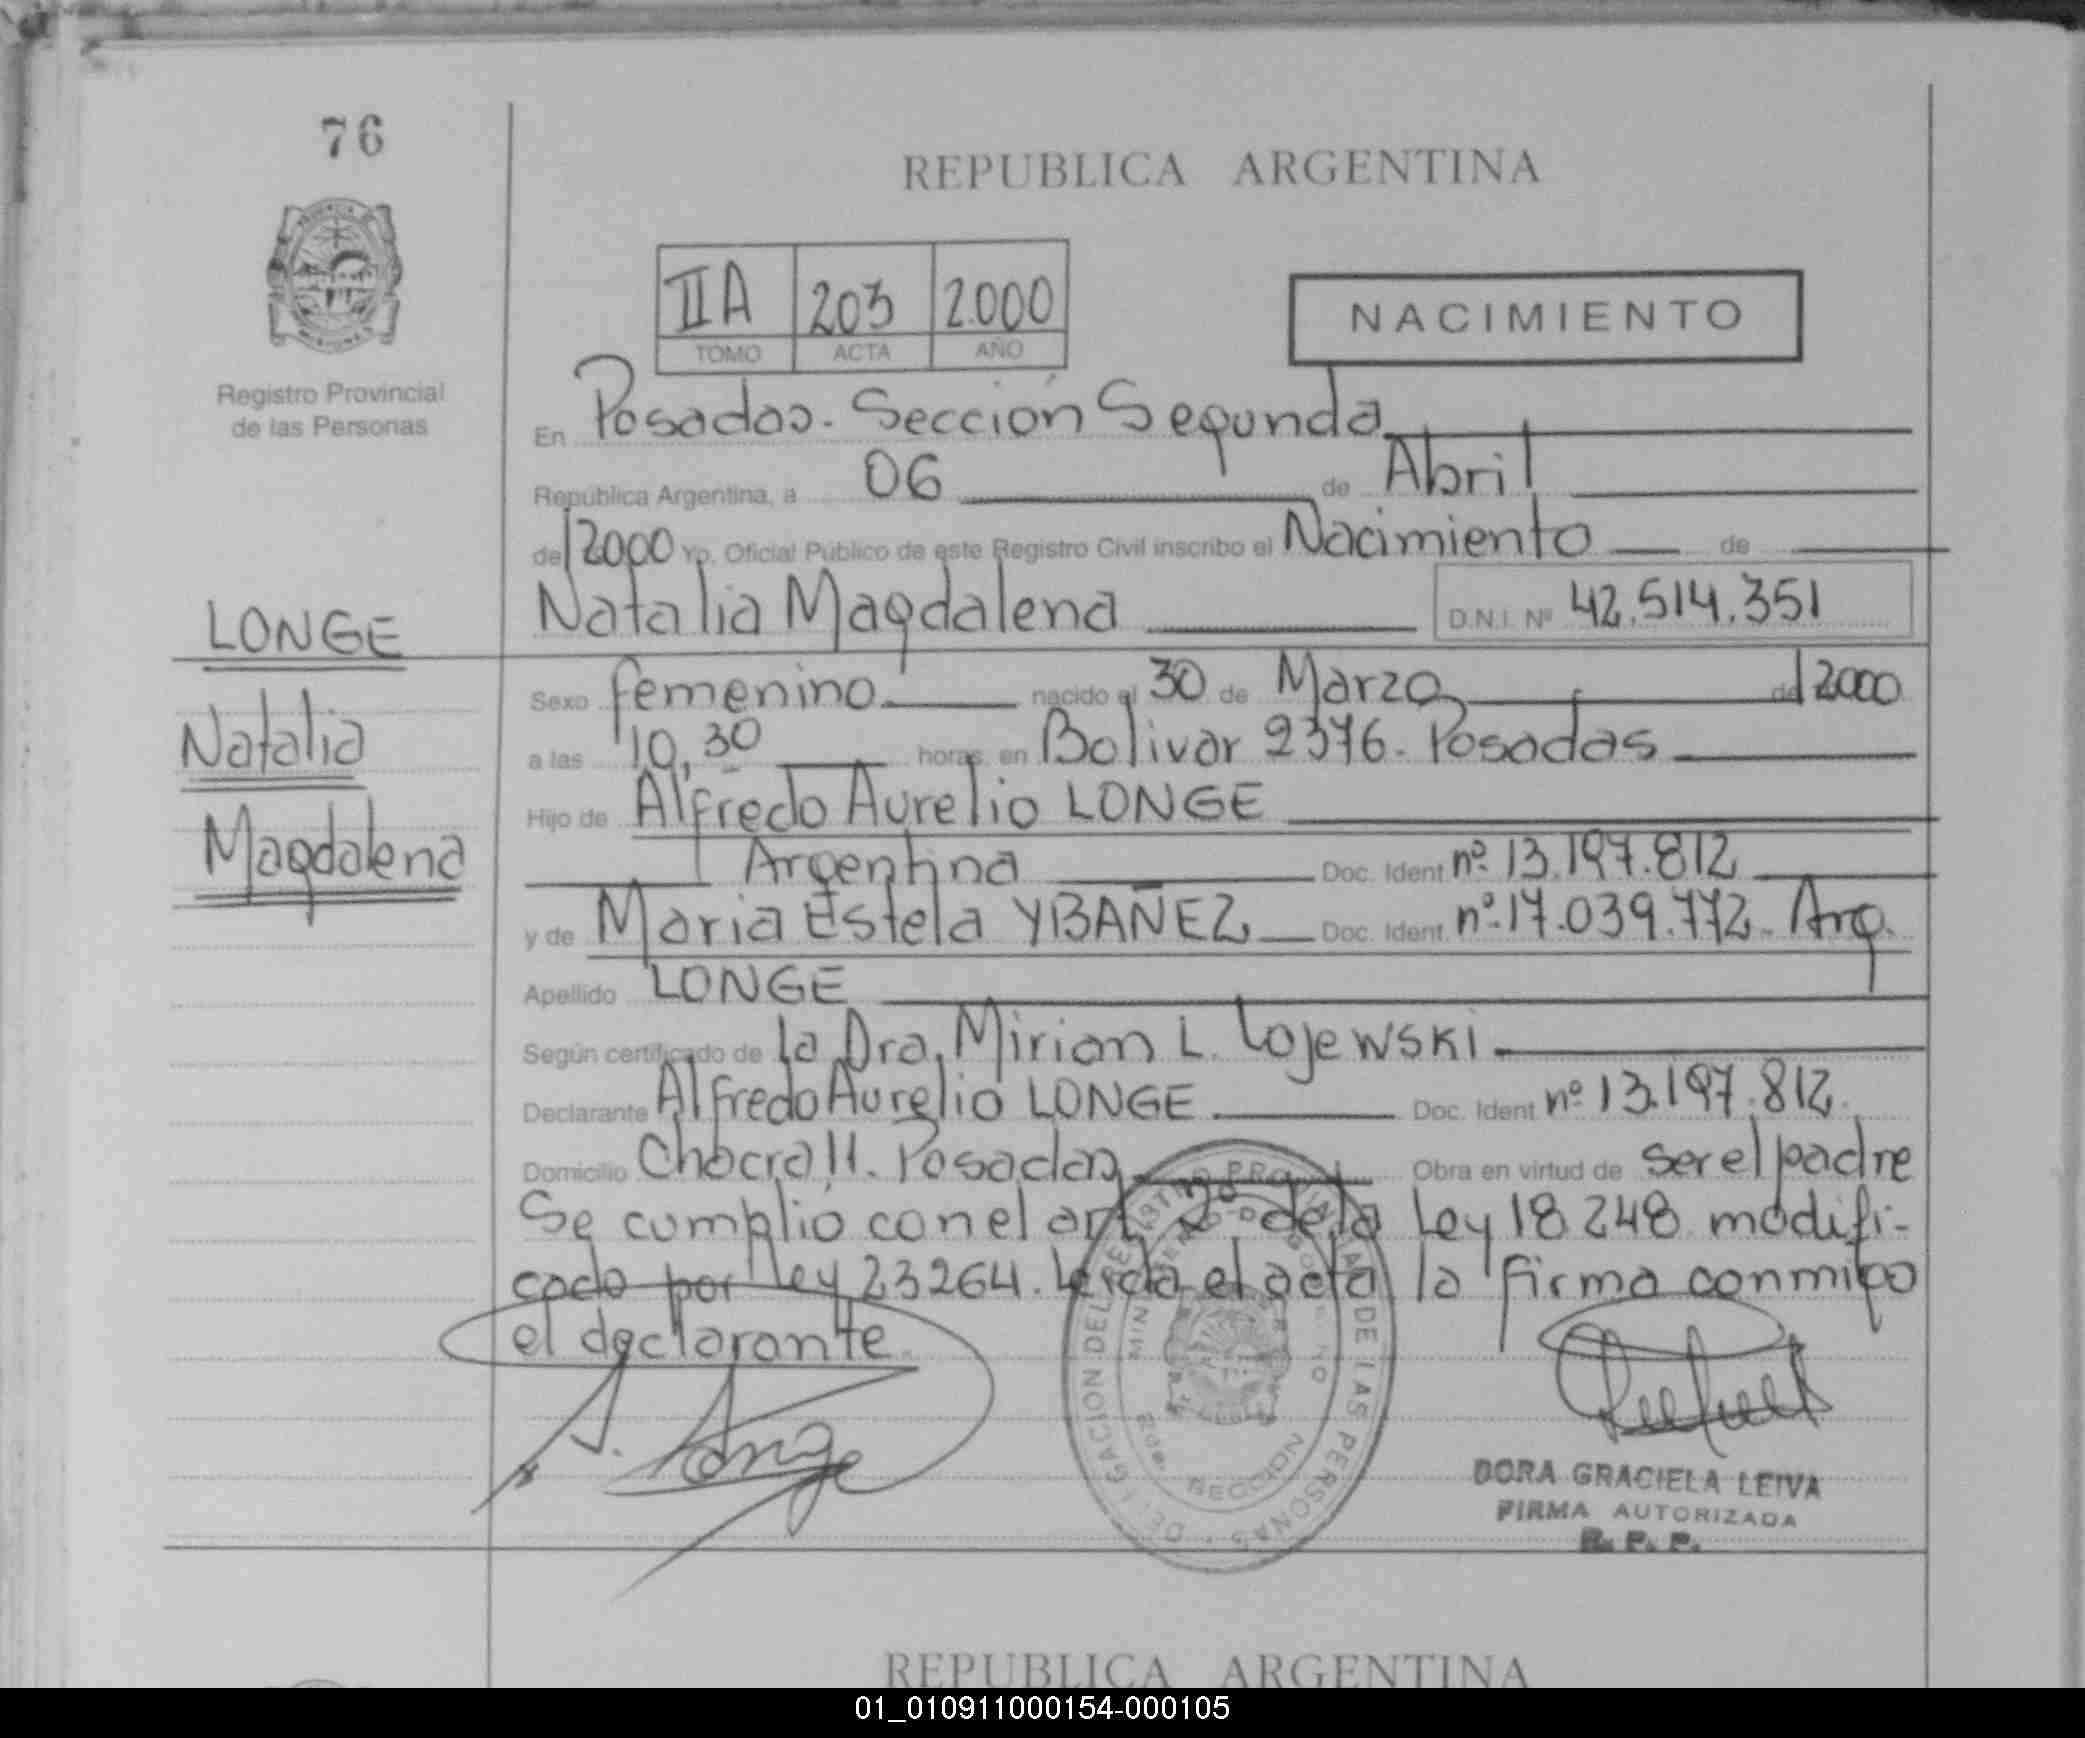 76
REPUBLICA ARGENTINA
IIA 203 2.000
TOMO ACTA AÑO
NACIMIENTO
Registro Provincial
de las Personas
En Posadas. Sección Segunda
República Argentina, a 06 de Abril
de 2000 Yo. Oficial Público de este Registro Civil inscribo el Nacimiento de
Natalia Magdalena D.N.I. Nº 42.514.351
LONGE
Natalia
Magdalena
Sexo femenino nacido el 30 de Marzo de 2000
a las 10,30 horas en Bolivar 2376. Posadas
Hijo de Alfredo Aurelio LONGE
Argentina Doc. Ident. nº 13.197.812
y de Maria Estela YBAÑEZ Doc. Ident. nº 17.039.772. Arg.
Apellido LONGE
Según certificado de la Dra. Mirian L. Lojewski
Declarante Alfredo Aurelio LONGE Doc. Ident nº 13.197.812.
Domicilio Chacra 11. Posadas Obra en virtud de ser el padre
Se cumplió con el art 2º de la Ley 18248 modifi-
cado por ley 23264. Leída el acta la firma conmigo
el declarante
A. Longe
DELEGACION DEL REGISTRO PROVINCIAL DE LAS PERSONAS
SECCION
DORA GRACIELA LEIVA
FIRMA AUTORIZADA
R. P. P.
REPUBLICA ARGENTINA
01_010911000154-000105